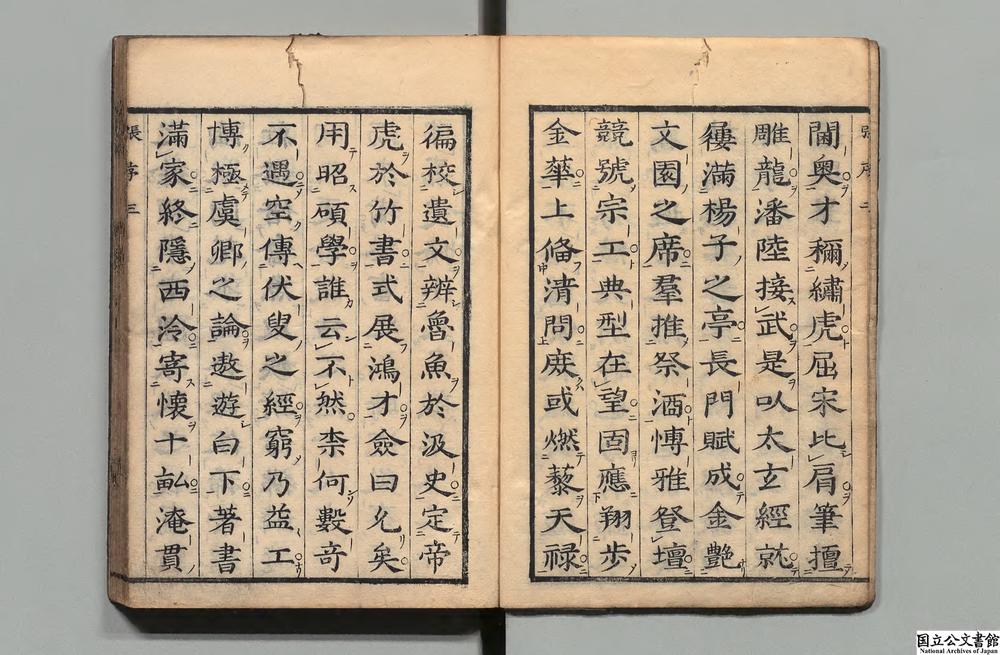 張序 二
閫奥才穪繡虎屈宋比肩筆擅
雕龍潘陸接武是以太玄經就
屨滿楊子之亭長門賦成金艷
文園之席羣推祭酒愽雅登壇
競號宗工典型在望固應翔歩
金華上俻清問庻或燃藜天禄
徧校遺文辨魯魚於汲史定帝
虎於竹書式展鴻才僉曰允矣
用昭碩學誰云不然柰何數竒
不遇空傳伏叟之經窮乃益工
博極虞卿之論遨遊白下著書
滿家終隱西泠寄懷十畆淹貫
張序 三
国立公文書館
National Archives of Japan